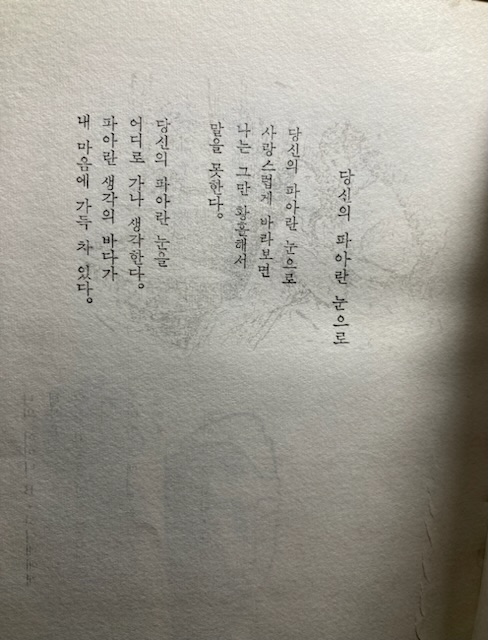 당신의 파아란 눈으로
당신의 파아란 눈으로
사랑스럽게 바라보면
나는 그만 황홀해서
말을 못한다.
당신의 파아란 눈을
어디로 가나 생각한다.
파아란 생각의 바다가
내 마음에 가득 차 있다.